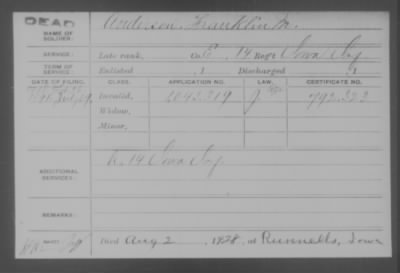 DEAD
NAME OF SOLDIER:
Anderson, Franklin M.
SERVICE:
Late rank, Co. E, 14 Reg't Iowa Inf
TERM OF SERVICE:
Enlisted 1 Discharged 1
DATE OF FILING. CLASS. APPLICATION NO. LAW. CERTIFICATE NO.
Invalid, 1043,319 G 792.323
Widow,
Minor,
ADDITIONAL SERVICES:
K. 14 Iowa Inf
REMARKS:
Died Aug 2, 1928, at Runnells, Iowa